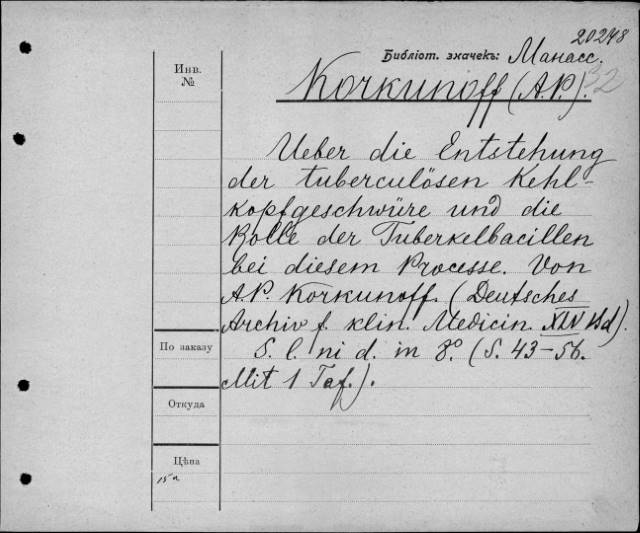 20248
Библіот. значекъ: Манасс.
Инв.
№
Korkunoff (A.P.). 32
Ueber die Entstehung
der tuberculösen Kehl-
kopfgeschwüre und die
Rolle der Tuberkelbacillen
bei diesem Processe. Von
A.P. Korkunoff. (Deutsches
Archiv f. klin. Medicin. XLV Bd).
По заказу
S. l. ni d. in 8º. (S. 43–56.
Mit 1 Taf.).
Откуда
Цѣна